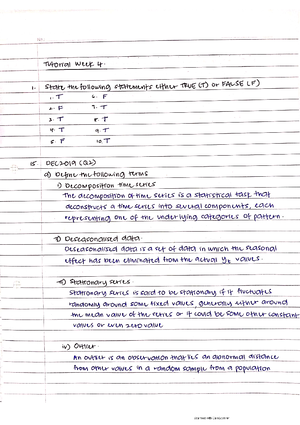 Tutorial Week 4.
1. State the following statements either TRUE (T) or FALSE (F)
1. T 6. F
2. F 7. T
3. T 8. T
4. T 9. T
5. T 10. T
15. DEC 2019 (Q2)
a) Define the following terms
i) Decomposition time series
The decomposition of time series is a statistical task that
deconstructs a time series into several components, each
representing one of the underlying categories of pattern.
ii) Deseasonalised data
Deseasonalised data is a set of data in which the seasonal
effect has been eliminated from the actual yt values.
iii) Stationary series
Stationary series is said to be stationary if it fluctuates
randomly around some fixed values, generally either around
the mean value of the series or it could be some other constant
values or even zero value
iv) Outlier
An outlier is an observation that lies an abnormal distance
from other values in a random sample from a population